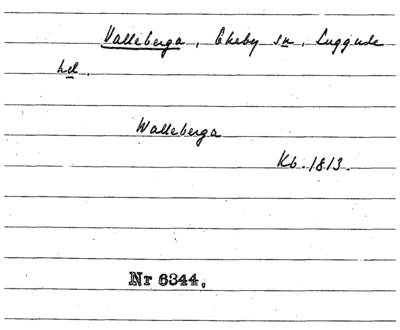 Valleberga, Ekeby sn, Luggude
hd.
Walleberga
Kb. 1813.
Nr 6344.